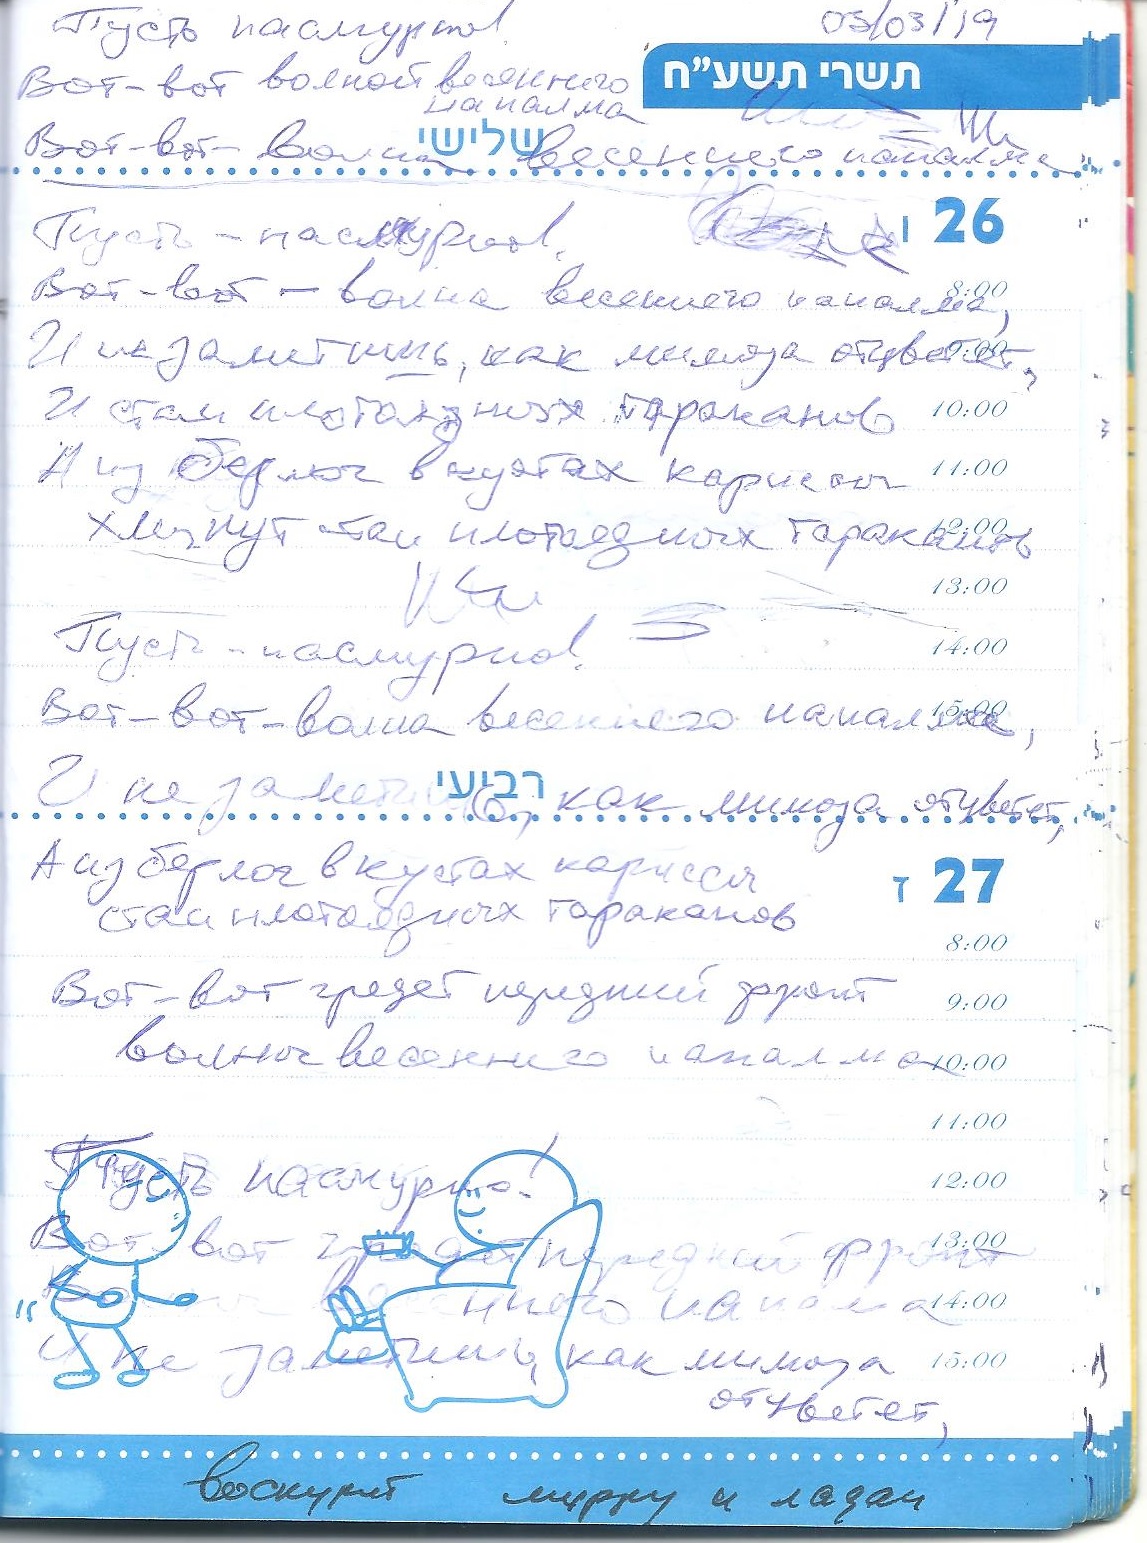 Пусть пасмурно!
03/03/19
Вот-вот волной весеннего
напалма
תשרי תשע"ח
שלישי
Вот-вот- волна весеннего напалма
26 ו
Пусть - пасмурно!
Вот-вот - волна весеннего напалма,
8:00
И не заметишь, как мимоза отцветет,
9:00
И стаи плотоядных тараканов
10:00
А из берлог в кустах карисы
11:00
хлынут стаи плотоядных тараканов
12:00
13:00
Пусть - пасмурно!
14:00
Вот-вот-волна весеннего напалма,
15:00
רביעי
И не заметишь, как мимоза отцветет,
27 ז
А из берлог в кустах кариссы
стаи плотоядных тараканов
8:00
Вот-вот грядет передний фронт
9:00
волны весеннего напалма
10:00
11:00
Пусть пасмурно!
12:00
Вот-вот грядет передний фронт
13:00
Волны весеннего напалма
14:00
И не заметишь, как мимоза
15:00
отцветет,
воскурят мирру и ладан